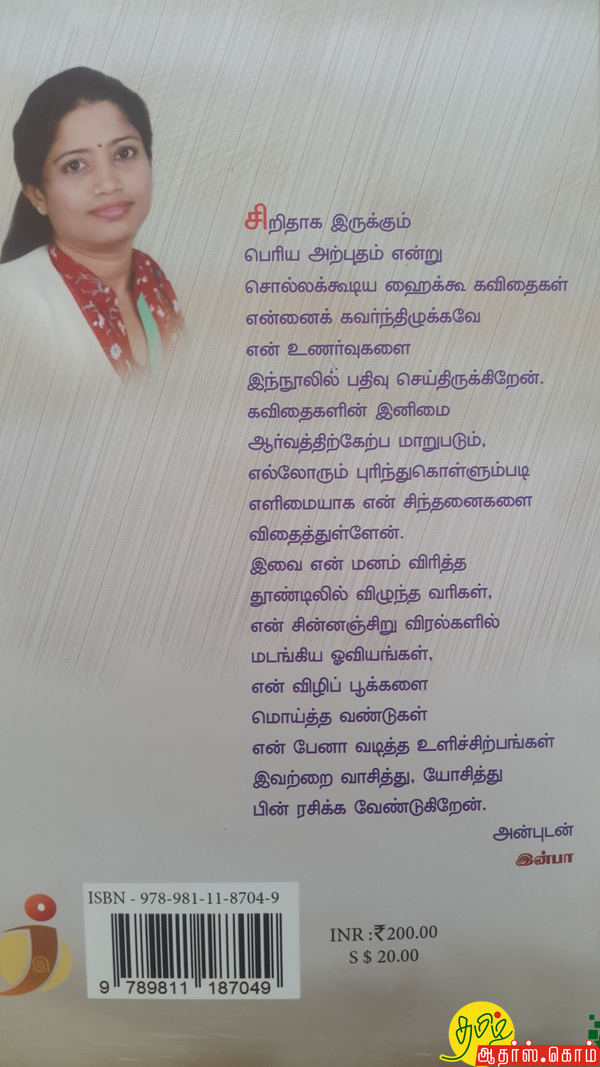 சிறிதாக இருக்கும்
பெரிய அற்புதம் என்று
சொல்லக்கூடிய ஹைக்கூ கவிதைகள்
என்னைக் கவர்ந்திழுக்கவே
என் உணர்வுகளை
இந்நூலில் பதிவு செய்திருக்கிறேன்.
கவிதைகளின் இனிமை
ஆர்வத்திற்கேற்ப மாறுபடும்,
எல்லோரும் புரிந்துகொள்ளும்படி
எளிமையாக என் சிந்தனைகளை
விதைத்துள்ளேன்.
இவை என் மனம் விரித்த
தூண்டிலில் விழுந்த வரிகள்,
என் சின்னஞ்சிறு விரல்களில்
மடங்கிய ஓவியங்கள்,
என் விழிப் பூக்களை
மொய்த்த வண்டுகள்
என் பேனா வடித்த உளிச்சிற்பங்கள்
இவற்றை வாசித்து, யோசித்து
பின் ரசிக்க வேண்டுகிறேன்.
அன்புடன்
இன்பா
இ
ISBN - 978-981-11-8704-9
9 789811 187049
INR :₹200.00
S $ 20.00
தமிழ்
ஆதர்ஸ்.கொம்